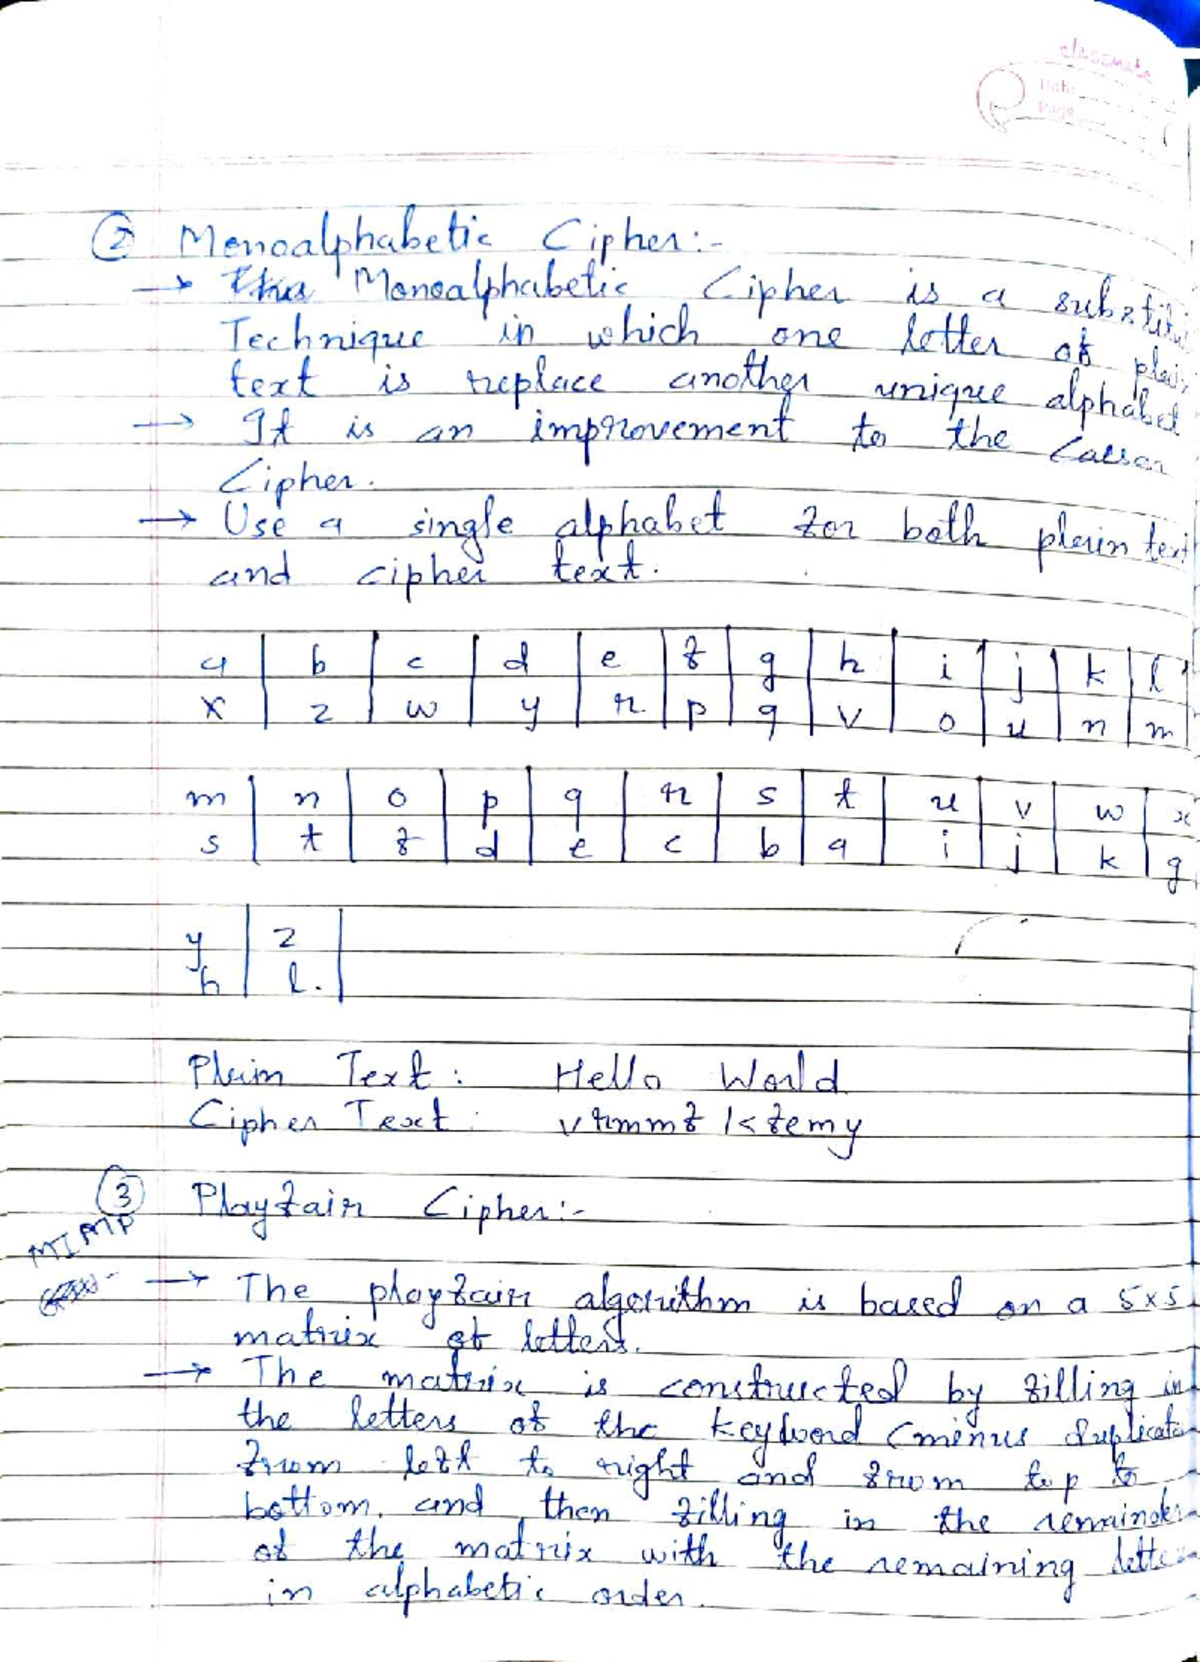 classmate
Date
Page
② Monoalphabetic Cipher:-
→ Monoalphabetic Cipher is a substitu
Technique in which one letter of plain
text is replace another unique alphabet
→ It is an improvement to the Caesar
Cipher.
→ Use a single alphabet for both plain text
and cipher text.
a | b | c | d | e | f | g | h | i | j | k | l
x | z | w | y | r | p | q | v | o | u | n | m
m | n | o | p | q | r | s | t | u | v | w | x
s | t | f | d | e | c | b | a | i | j | k | g
y | z |
h | l. |
Plain Text : Hello World
Cipher Text : vrmmf kfemy
③ Playfair Cipher:-
MIMP
→ The playfair algorithm is based on a 5x5
matrix of letters.
→ The matrix is constructed by filling in
the letters of the keyword (minus duplicate
from left to right and from top to
bottom, and then filling in the remainder
of the matrix with the remaining letter
in alphabetic order.